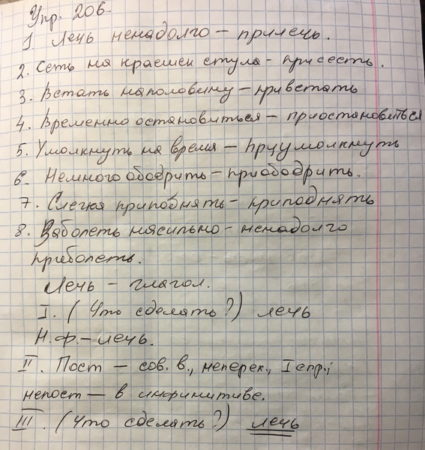 Упр. 206.
1 Лечь ненадолго – прилечь.
2. Сеть на краешек стула – присесть.
3. Встать наполовину – привстать
4. Временно остановиться – приостановиться
5. Умолкнуть на время – приумолкнуть
6. Немного ободрить – приободрить.
7. Слегка приподнять – приподнять
8. Заболеть несильно – ненадолго
приболеть.
Лечь – глагол.
I. (Что сделать?) лечь
Н.ф. – лечь.
II. Пост – сов. в., неперех., I спр.;
непост – в инфинитиве.
III. (Что сделать?) лечь